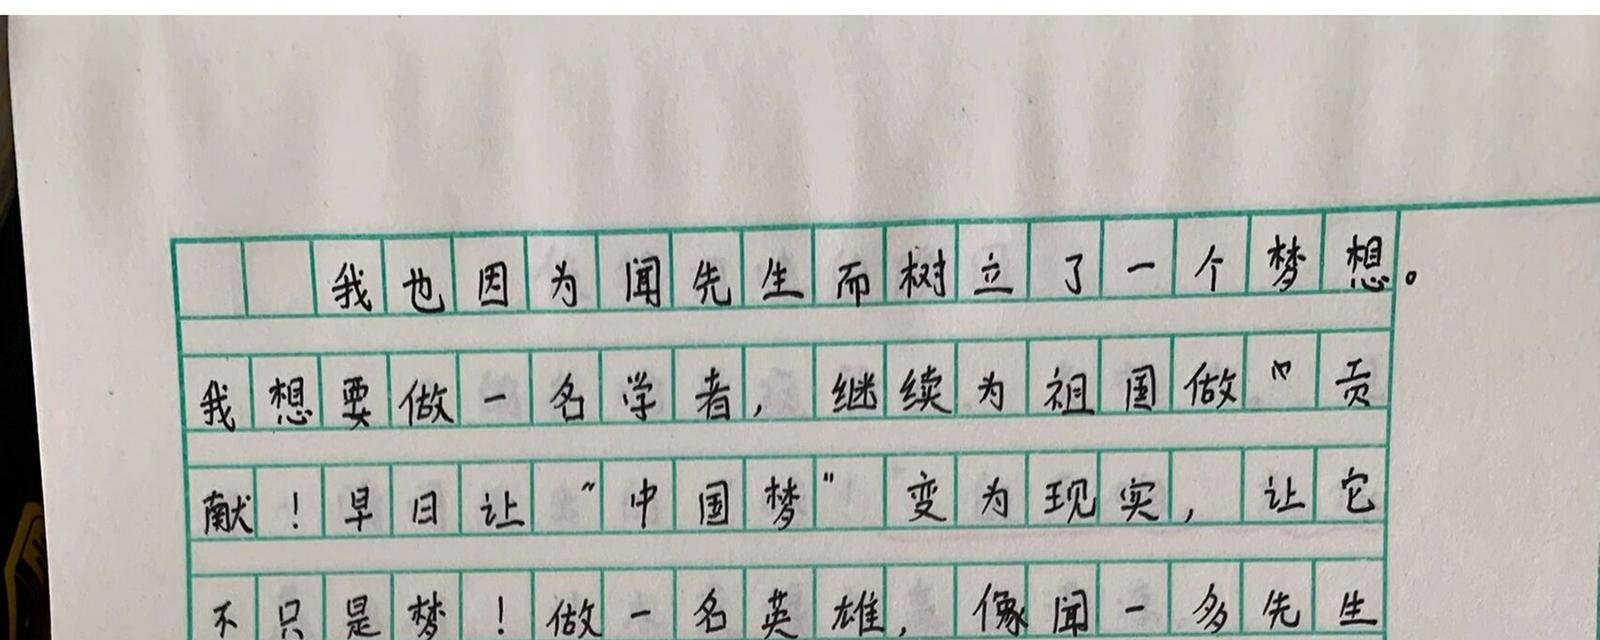 我也因为闻先生而树立了一个梦想。
我想要做一名学者，继续为祖国做贡
献！早日让“中国梦”变为现实，让它
不只是梦！做一名英雄，像闻一多先生